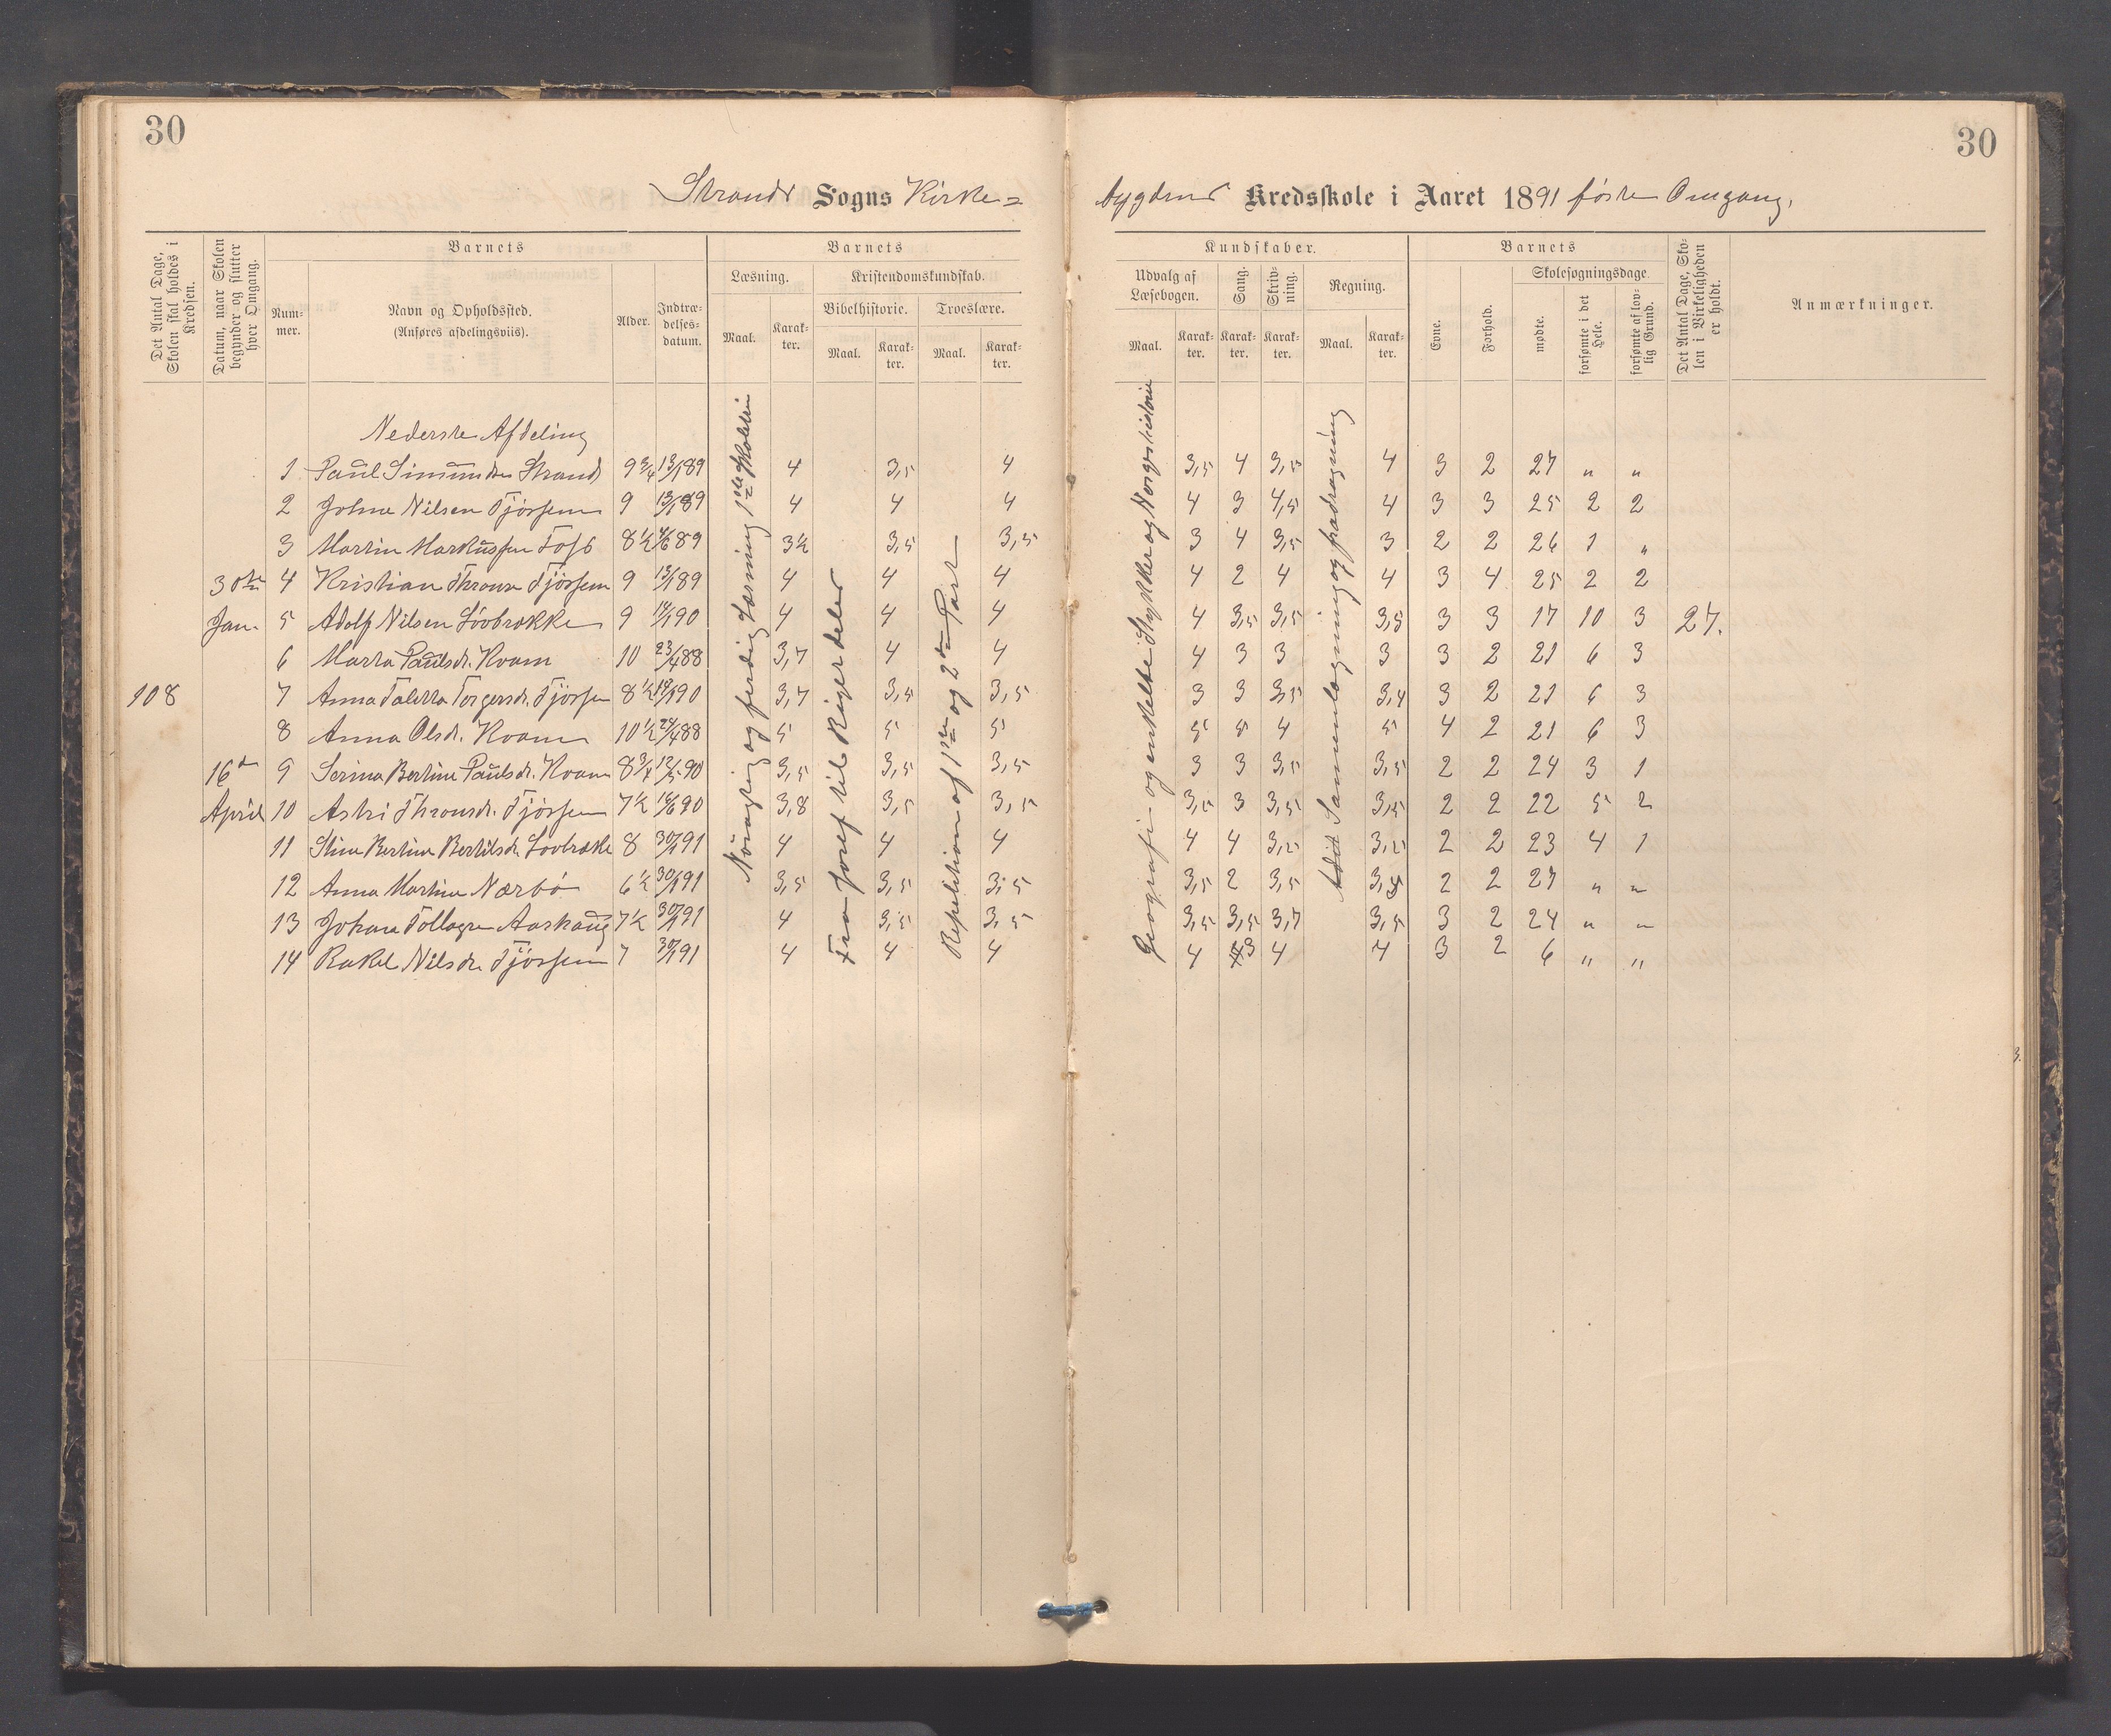 30
30
Strands Sogns Kirke=
bygdens Kredsskole i Aaret 1891 første Omgang.
Det Antal Dage, Skolen skal holdes i Kredsen.
Datum, naar Skolen begynder og slutter hver Omgang.
Barnets
Num-mer.
Navn og Opholdssted.
(Anføres afdelingsviis).
Alder.
Indtræ-delses-datum.
Barnets
Læsning.
Maal.
Karak-ter.
Kristendomskundskab.
Bibelhistorie.
Maal.
Karak-ter.
Troeslære.
Maal.
Karak-ter.
Kundskaber.
Udvalg af Læsebogen.
Maal.
Karak-ter.
Sang.
Karak-ter.
Skriv-ning.
Karak-ter.
Regning.
Maal.
Karak-ter.
Barnets
Evne.
Forhold.
Skolesøgningsdage.
mødte.
forsømte i det Hele.
forsømte af lov-lig Grund.
Det Antal Dage, Sko-len i Virkeligheden er holdt.
Anmærkninger.
Nederste Afdeling
1 Paul Simundsen Strand 9 3/4 13/1 89 4 3,5 4 3,5 4 3,5 4 3 2 27 " "
2 Johne Nilsen Tjøssem 9 13/1 89 4 4 4 4 3 4,5 4 3 3 25 2 2
3 Martin Markussen Toft 8 1/2 4/6 89 3 1/2 3,5 3,5 3 4 3,5 3 2 2 26 1 "
30te 4 Kristian Thronsen Tjøssem 9 13/1 89 4 4 4 4 2 4 4 3 4 25 2 2
Jan. 5 Adolf Nilsen Løvbrække 9 14/1 90 4 4 4 4 3,5 3,5 3,5 3 3 17 10 3 27.
6 Marta Paulsdr. Kvam 10 23/4 88 3,7 4 4 4 3 3 3 3 2 21 6 3
108 7 Anna Taletta Torgersdr. Tjøssem 8 1/2 14/1 90 3,7 3,5 3,5 3 3 3,5 3,4 3 2 21 6 3
8 Anna Olsdr. Kvam 10 1/2 24/4 88 5 5 5 5 5 4 5 4 2 21 6 3
16de 9 Serina Bertine Paulsdr. Kvam 8 3/4 12/5 90 3,5 3,5 3,5 3 3 3,5 3,5 2 2 24 3 1
April 10 Astri Thronsdr. Tjøssem 7 1/2 16/6 90 3,8 3,5 3,5 3,5 3 3,5 3,5 2 2 22 5 2
11 Stine Bertine Bertilsdr. Løvbrække 8 30/1 91 4 4 4 4 4 3,5 3,5 2 2 23 4 1
12 Anna Martine Nærbø 6 1/2 30/1 91 3,5 3,5 3,5 3,5 2 3,5 3,5 2 2 27 " "
13 Johan Tollagsen Aashaug 7 1/2 30/1 91 4 3,5 3,5 3,5 3,5 3,7 3,5 3 2 24 " "
14 Rakel Nilsdr. Tjøssem 7 30/1 91 4 4 4 4 3 4 4 3 2 6 " "
Nøiagtig og færdig Læsning 1ste Skoletrin
Fra Josef til Rigets deler
Repetition af 1ste og 2den Part
Geografi- og enkelte Stykker og Norgeshistorie
Sammenlægning og fradragning